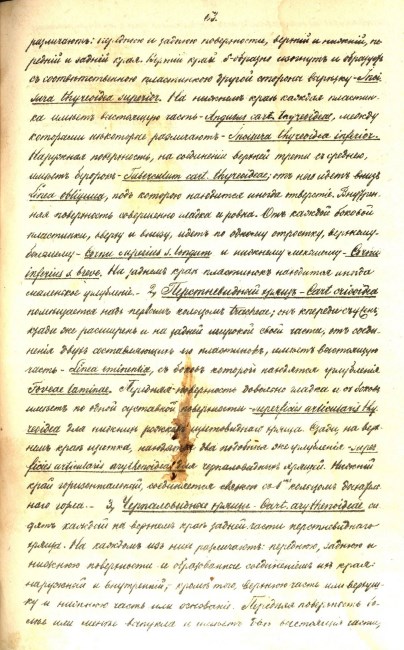 63.
различаютъ: переднюю и заднюю поверхности, верхній и нижній, пе-
редній и задній края. Верхній край S-образно изогнутъ и образуетъ
съ соотвѣтственною пластинкою другой стороны вырѣзку - Inci-
sura thyreoidea superior. На нижнемъ краѣ каждая пластин-
ка имѣетъ выстоящую часть - Angulus cart. thyreoideae, между
которыми нѣкоторые различаютъ - Incisura thyreoidea inferior.
Наружная поверхность, на соединеніи верхней трети съ среднею,
имѣетъ бугорокъ - Tuberculum cart. thyreoideae; отъ нея идетъ внизъ
Linea obliqua, подъ которою находится иногда отверстіе. Внутрен-
няя поверхность совершенно гладка и ровна. Отъ каждой боковой
пластинки, вверху и внизу, идетъ по одному отростку, верхнему
большему - Cornu superius s. longum и нижнему меньшему - Cornu
inferius s. breve. На заднемъ краѣ пластинокъ находится иногда
маленькое углубленіе. - 2, Перстневидный хрящъ - Cart. cricoidea
помѣщается надъ первымъ кольцомъ tracheae; онъ кпереди съуженъ,
кзади же расширенъ и на задней широкой свой части, отъ соеди-
ненія двухъ составляющихъ его пластинокъ, имѣетъ выстоящую
часть - Linea eminentia, съ боковъ которой находятся углубленія
Foveae laminae. Передняя поверхность довольно гладка и съ боковъ
имѣетъ по одной суставной поверхности - superficies articularis thy-
reoidea для нижнихъ рожковъ щитовиднаго хряща. Сзади, на верх-
немъ краѣ щитка, находятся два подобныя же углубленія - super-
ficies articularis arythenoidea для черпаловидныхъ хрящей. Нижній
край горизонтальный, соединяется связкою съ 1мъ кольцомъ дыхатель-
наго горла. - 3, Черпаловидные хрящи - Cart. arythenoideae си-
дятъ каждый на верхнемъ краѣ задней части перстневиднаго
хряща. На каждомъ изъ нихъ различаютъ: переднюю, заднюю и
нижнюю поверхности и образованные соединеніемъ ихъ края -
наружный и внутренній; кромѣ того, верхнюю часть или верхуш-
ку и нижнюю часть или основаніе. Передняя поверхность бо-
лѣе или менѣе выпукла и имѣетъ выстоящія части,